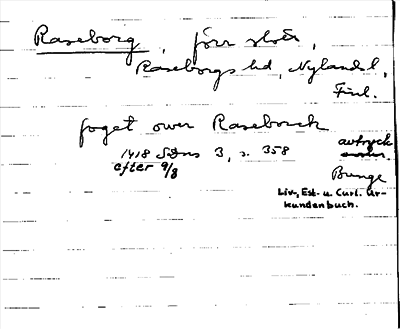 Raseborg, förr slott,
Raseborgs hd, Nylands l,
Finl.
foget over Raseborck
1418 SDns 3, s. 358 avtryck
efter 9/8
Bunge
Liv-, Est- u. Curl. Ur-
kundenbuch.